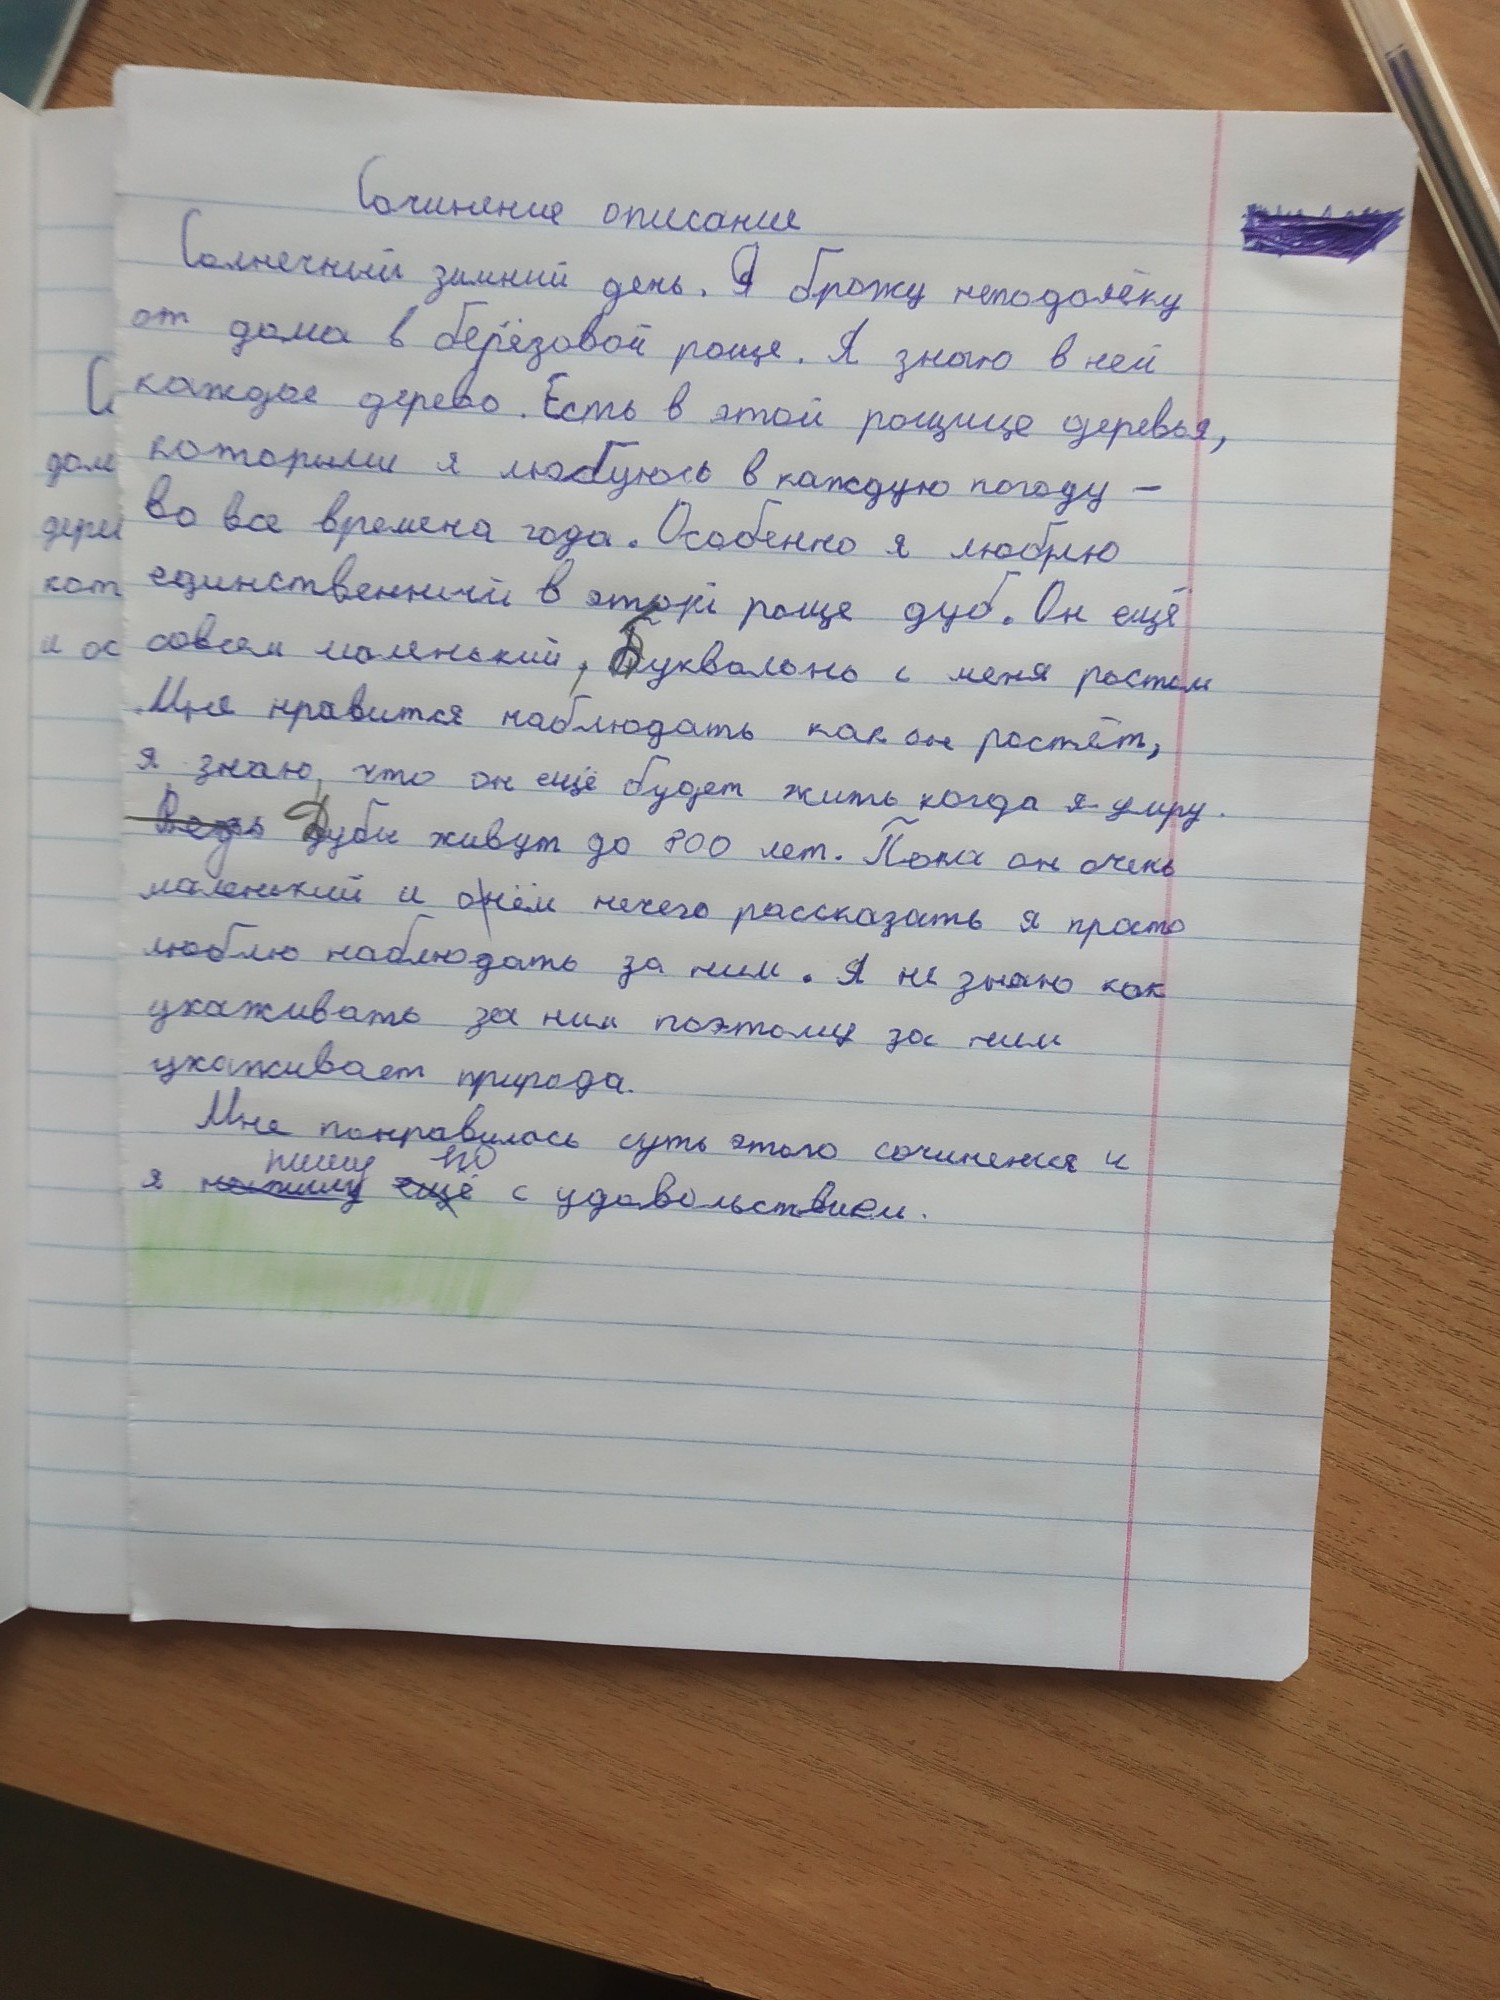 Сочинение описание
Солнечный зимний день. Я брожу неподолёку
от дома в берёзовой роще. Я знаю в ней
каждое дерево. Есть в этой рощице деревья,
которыми я любуюсь в каждую погоду –
во все времена года. Особенно я люблю
единственный в этой роще дуб. Он ещё
совсем маленький, буквалоно с меня ростом
Мне нравится наблюдать как он ростёт,
я знаю, что он ещё будет жить когда я умру.
Ведь Дубы живут до 800 лет. Пока он очень
маленький и о нём нечего рассказать я просто
люблю наблюдать за ним. Я не знаю как
ухаживать за ним поэтому за ним
ухаживает природа.
Мне понравилось суть этого сочинения и
пишу его
я напишу ещё с удовольствием.
С
дом
дере
кот
и ос